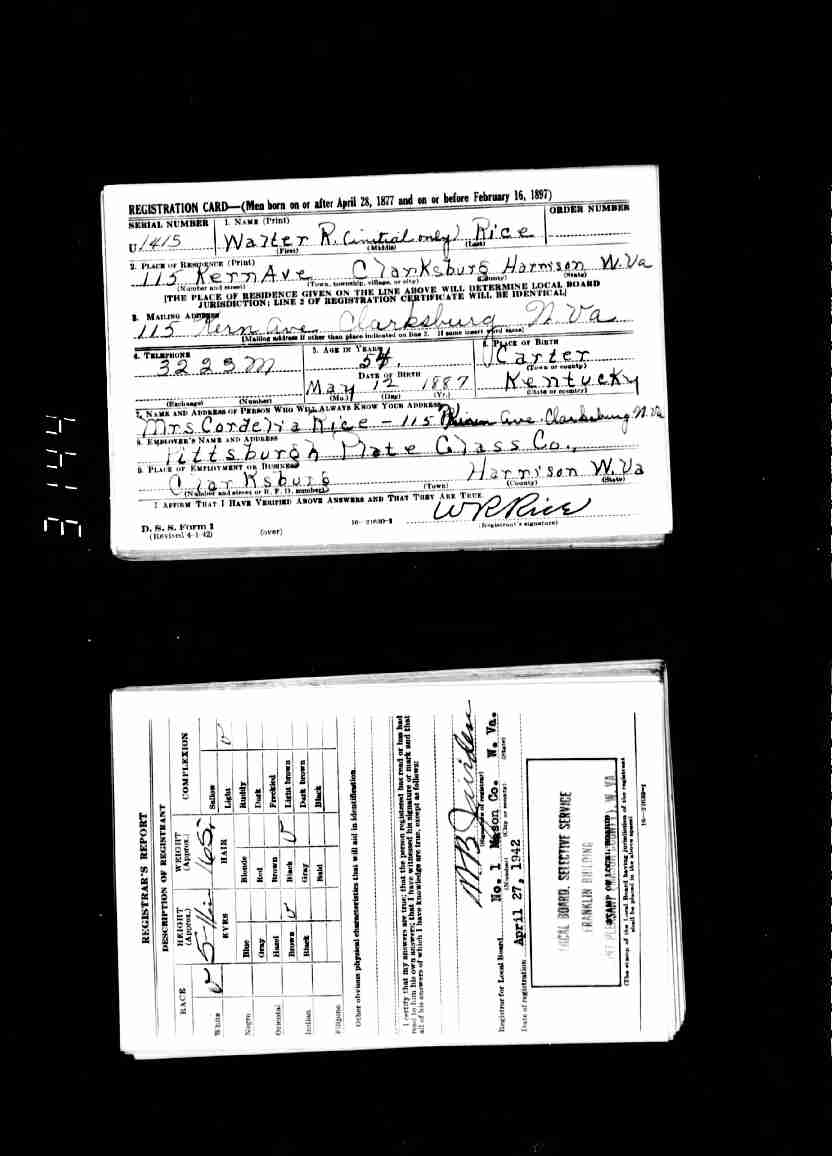 REGISTRATION CARD—(Men born on or after April 28, 1877 and on or before February 16, 1897)
SERIAL NUMBER 1. NAME (Print) ORDER NUMBER
U 1415 Walter R. (initial only) Rice
(First) (Middle) (Last)
2. PLACE OF RESIDENCE (Print)
115 Kern Ave Clarksburg Harrison W. Va
(Number and street) (Town, township, village, or city) (County) (State)
[THE PLACE OF RESIDENCE GIVEN ON THE LINE ABOVE WILL DETERMINE LOCAL BOARD
JURISDICTION; LINE 2 OF REGISTRATION CERTIFICATE WILL BE IDENTICAL]
3. MAILING ADDRESS
115 Kern Ave Clarksburg W. Va
[Mailing address if other than place indicated on line 2. If same insert word same]
4. TELEPHONE 5. AGE IN YEARS 6. PLACE OF BIRTH
3223 M 54 Carter
(Town or county)
DATE OF BIRTH
May 12 1887 Kentucky
(Exchange) (Number) (Mo.) (Day) (Yr.) (State or country)
7. NAME AND ADDRESS OF PERSON WHO WILL ALWAYS KNOW YOUR ADDRESS
Mrs. Cordelia Rice - 115 Ave. Clarksburg W. Va
8. EMPLOYER'S NAME AND ADDRESS
Pittsburgh Plate Glass Co.,
9. PLACE OF EMPLOYMENT OR BUSINESS
Clarksburg Harrison W. Va
(Number and street or R. F. D. number) (Town) (County) (State)
I AFFIRM THAT I HAVE VERIFIED ABOVE ANSWERS AND THAT THEY ARE TRUE.
W R Rice
D. S. S. Form 1 16—21630-1 (Registrant's signature)
(Revised 4-1-42) (over)
REGISTRAR'S REPORT
DESCRIPTION OF REGISTRANT
RACE HEIGHT (Approx.) WEIGHT (Approx.) COMPLEXION
165
White v EYES HAIR Sallow
Light v
Negro Blue Blonde Ruddy
Gray Red Dark
Oriental Hazel Brown Freckled
Brown v Black v Light brown
Indian Black Gray Dark brown
Bald Black
Filipino
Other obvious physical characteristics that will aid in identification
I certify that my answers are true; that the person registered has read or has had
read to him his own answers; that I have witnessed his signature or mark and that
all of his answers of which I have knowledge are true, except as follows:
(Signature of registrar)
Registrar for Local Board No. 1 Mason Co. W. Va.
(Number) (City or county) (State)
Date of registration April 27, 1942
LOCAL BOARD, SELECTIVE SERVICE
FRANKLIN BUILDING
(STAMP OF LOCAL BOARD)
(The stamp of the Local Board having jurisdiction of the registrant
shall be placed in the above space)
16—21630-1